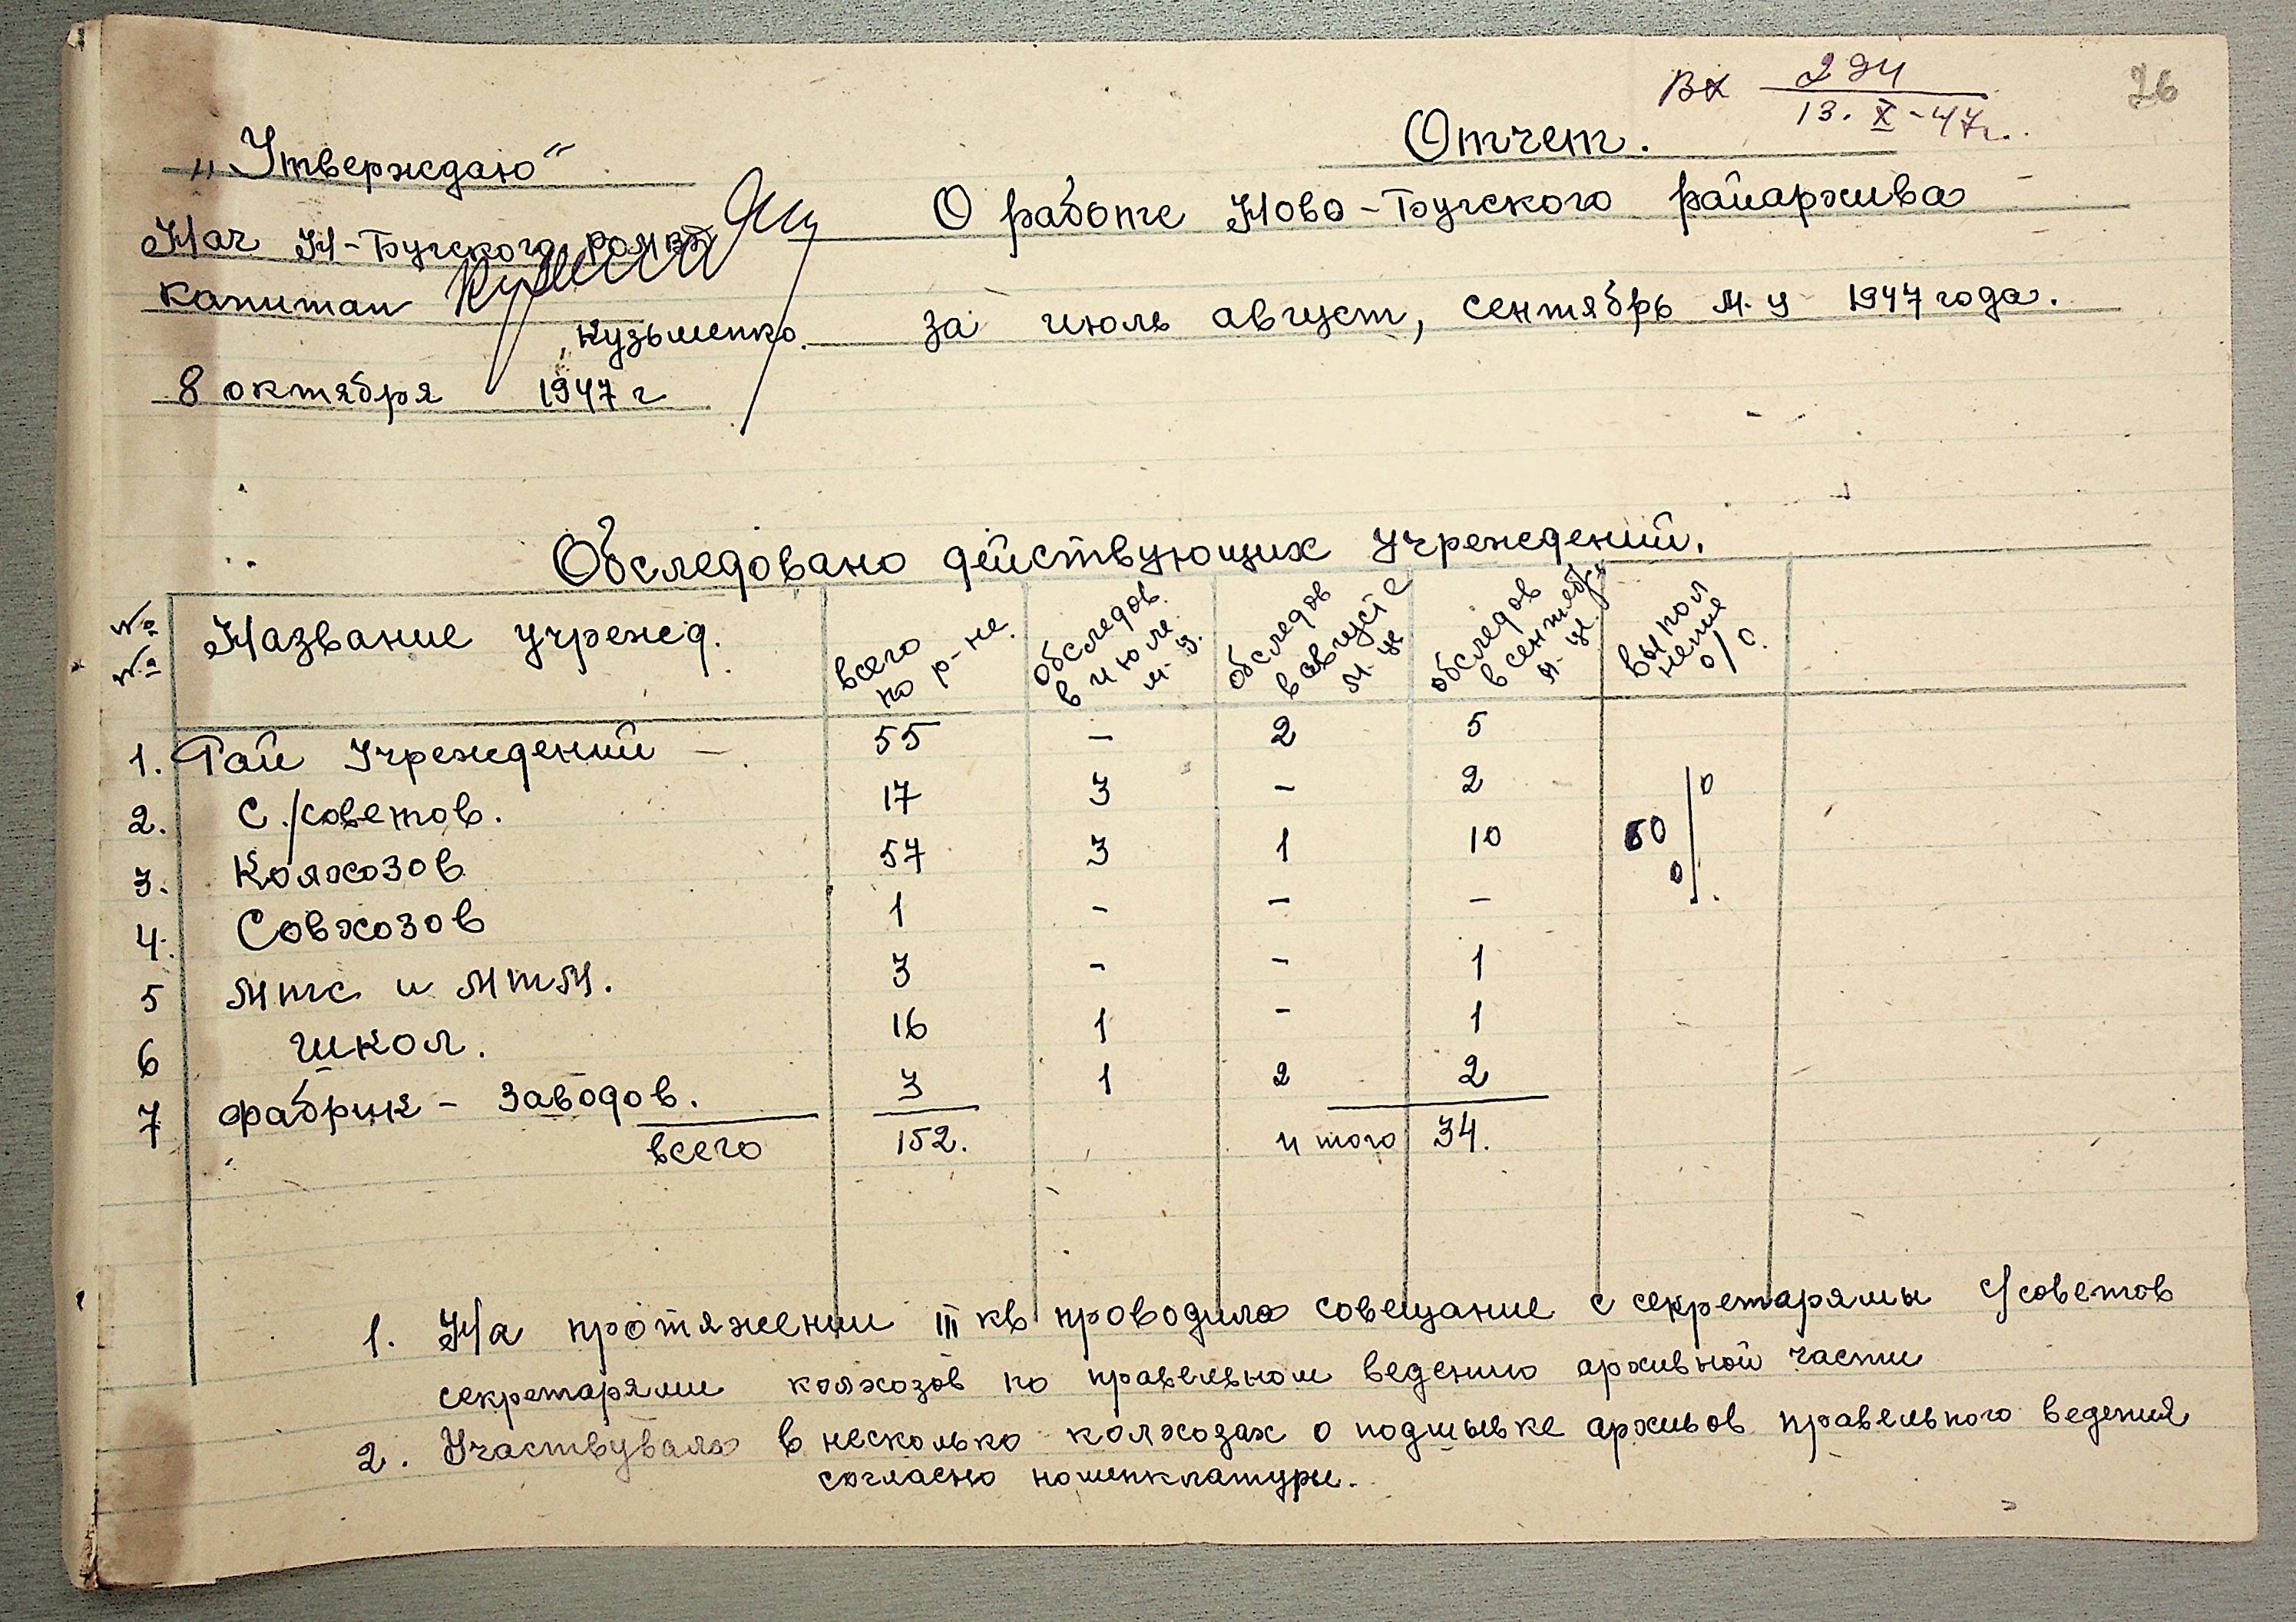 Вх 294
13.X-47г.
26
„Утверждаю“
Нач Н-Бугского РОМВД
капитан
Кузьменко.
8 октября 1947 г
Отчет.
О работе Ново-Бугского райархива
за июль август, сентябрь м-ц 1947 года.
Обследовано действующих учреждений.
№ № Название учрежд. всего по р-не. обследов. в июле м-ц. обследов в августе м-це обследов в сентябре м-це. выполнение 0/0.
1. Рай Учреждений - 55 - 2 5
2. С./советов. 17 3 - 2
3. Колхозов 57 3 1 10 60 0/0.
4. Совхозов 1 - - -
5 Мтс и МтМ. 3 - - 1
6 школ. 16 1 - 1
7 фабрик - заводов. 3 1 2 2
всего 152. итого 34.
1. На протяжении III кв проводила совещание с секретарямы с/советов
секретарями колхозов по правельном ведению архивной части
2. Участвувала в несколько колхозах о подшывке архивов правельного ведения
согласно номенклатуры.